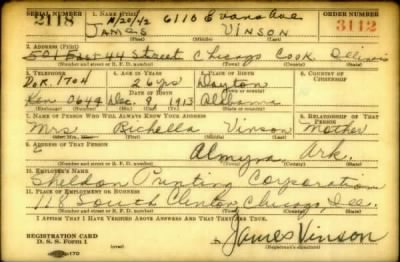 SERIAL NUMBER 1. NAME (Print) 11/20/42 6110 Evans Ave ORDER NUMBER
2118 JAMES VINSON 3112
(First) (Middle) (Last)
2. ADDRESS (Print)
501 East 44 Street Chicago Cook Illinois
(Number and street or R. F. D. number) (Town) (County) (State)
3. TELEPHONE 4. AGE IN YEARS 5. PLACE OF BIRTH 6. COUNTRY OF CITIZENSHIP
26 yrs Dayton
DATE OF BIRTH
Ken 0644 Dec. 9 1913 Alabama
(Exchange) (Number) (Mo.) (Day) (Yr.) (State or country)
7. NAME OF PERSON WHO WILL ALWAYS KNOW YOUR ADDRESS 8. RELATIONSHIP OF THAT PERSON
Mrs Richella Vinson Mother
(Mr., Mrs., Miss) (First) (Middle) (Last)
9. ADDRESS OF THAT PERSON
Almyra Ark.
(Number and street or R. F. D. number) (Town) (County) (State)
10. EMPLOYER'S NAME
Sheldon Printing Corporation
11. PLACE OF EMPLOYMENT OR BUSINESS
718 South Clinton, Chicago, Ill.
(Number and street or R. F. D. number) (Town) (County) (State)
I AFFIRM THAT I HAVE VERIFIED ABOVE ANSWERS AND THAT THEY ARE TRUE.
REGISTRATION CARD
D. S. S. Form 1
James Vinson
(Registrant's signature)